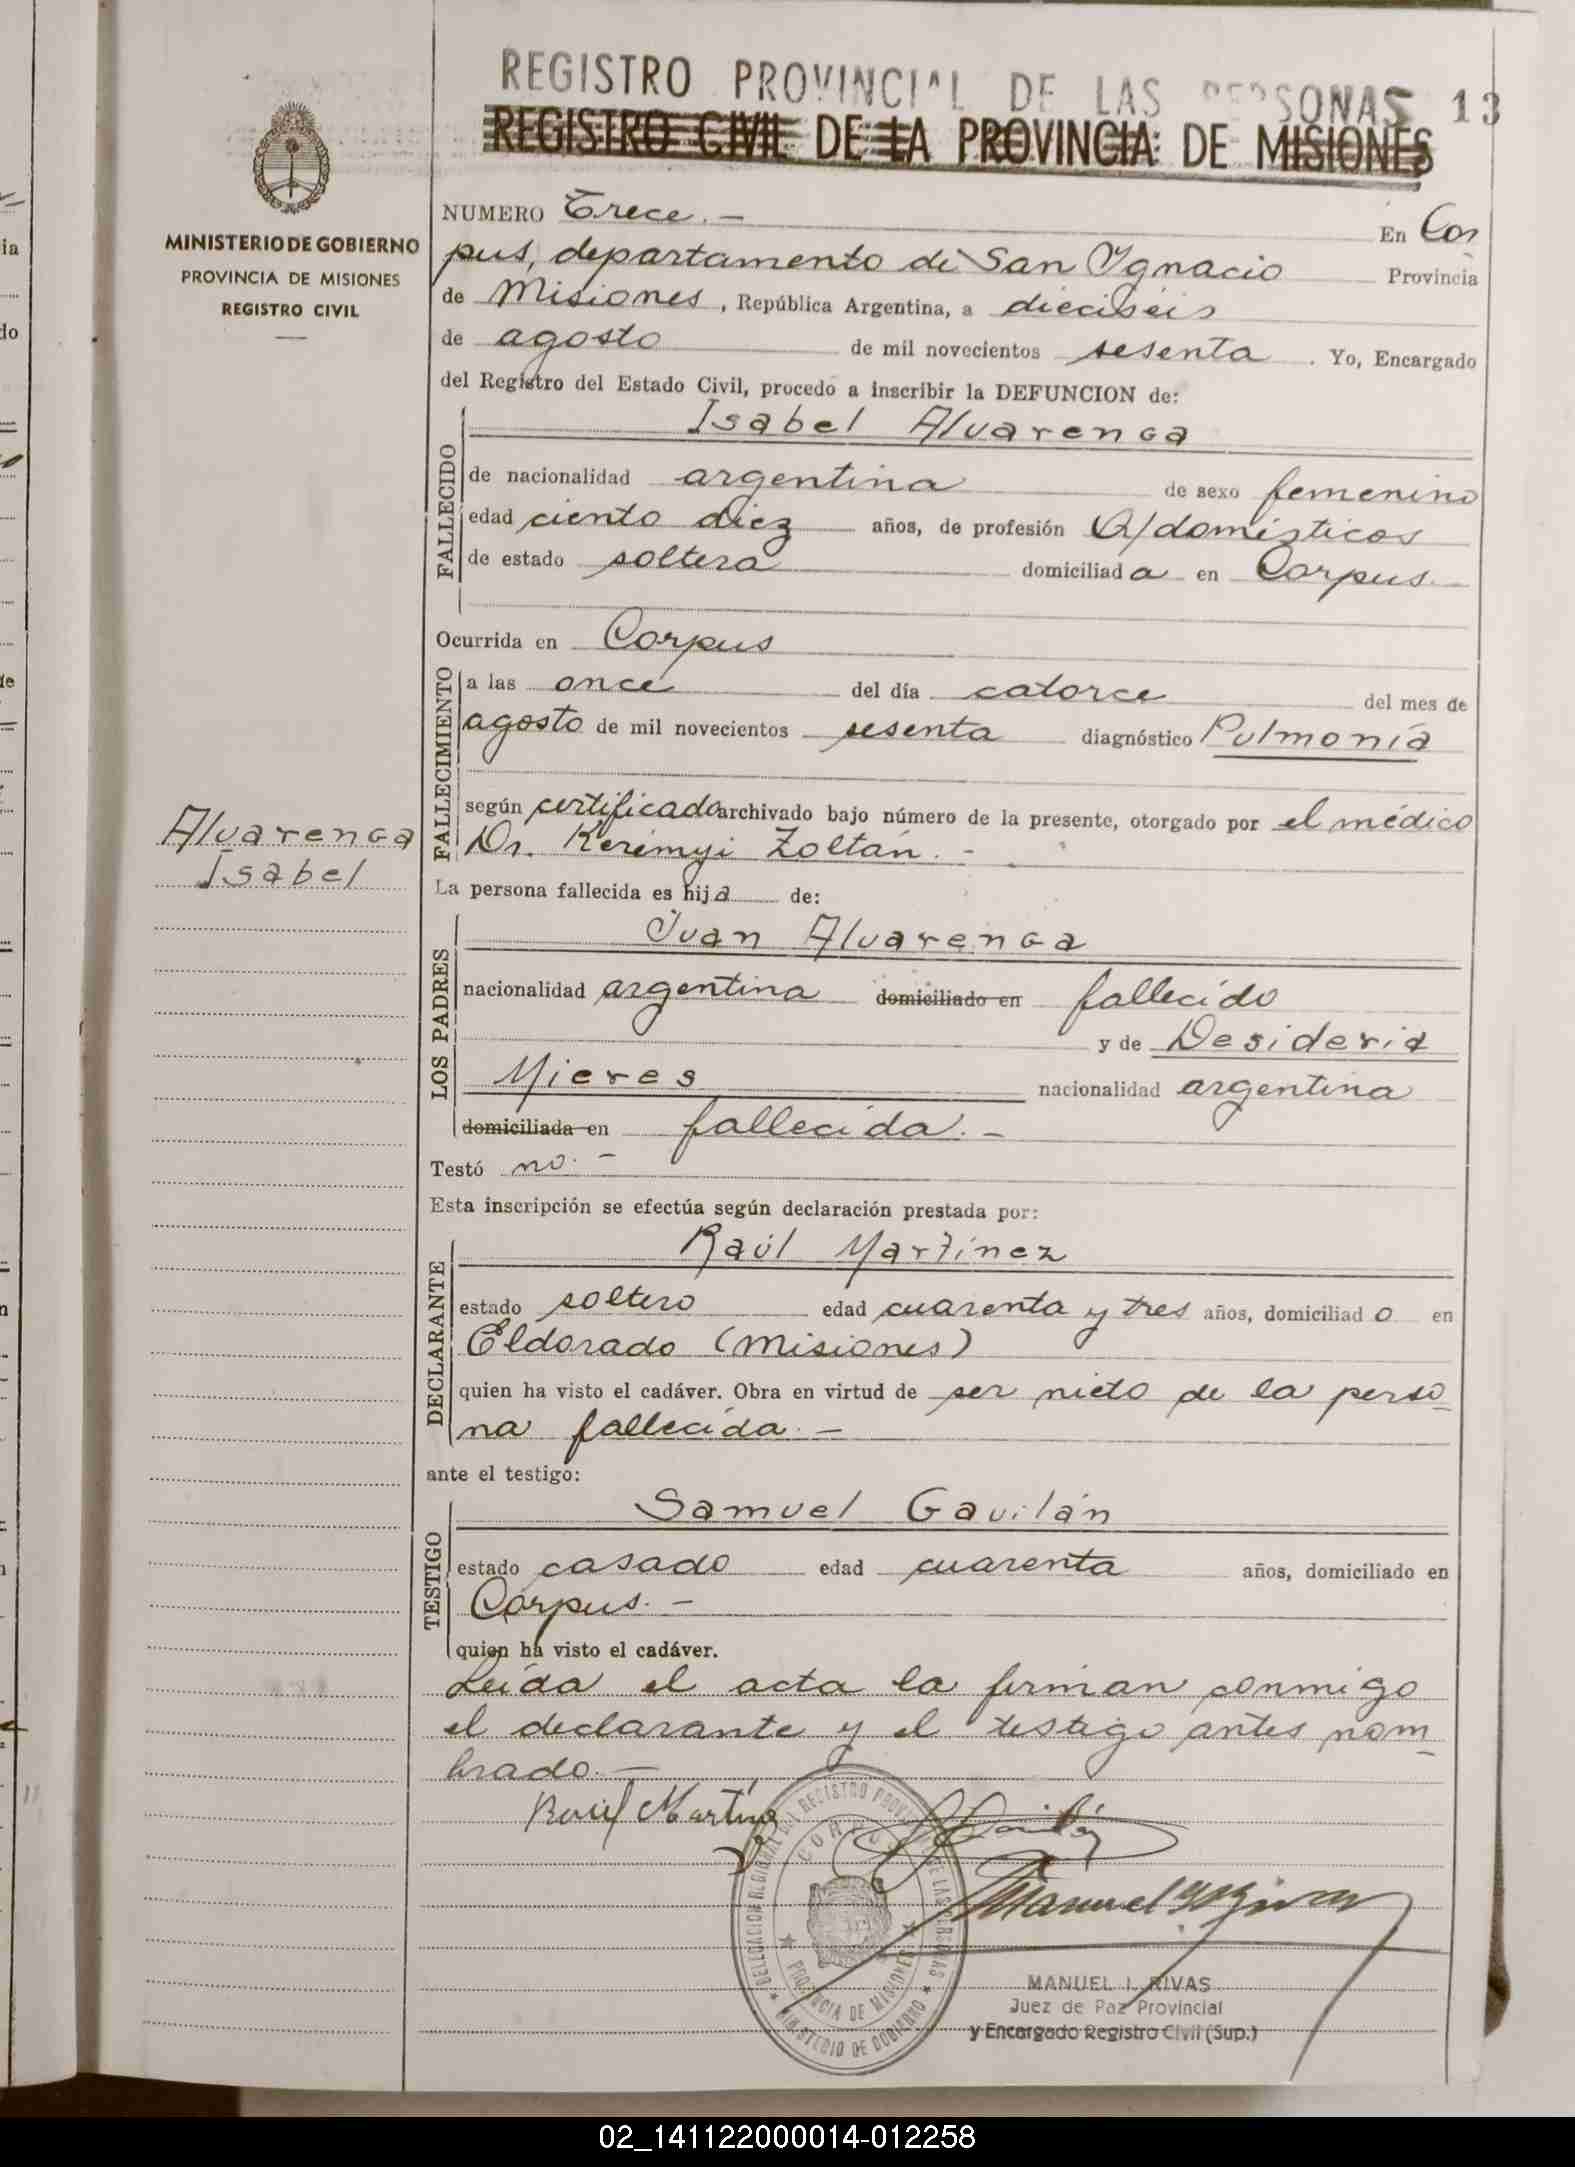 REGISTRO PROVINCIAL DE LAS PERSONAS 13
REGISTRO CIVIL DE LA PROVINCIA DE MISIONES
MINISTERIO DE GOBIERNO
PROVINCIA DE MISIONES
REGISTRO CIVIL
NUMERO Trece.- En Cor
pus, departamento de San Ygnacio Provincia
de Misiones, República Argentina, a dieciséis
de agosto de mil novecientos sesenta. Yo, Encargado
del Registro del Estado Civil, procedo a inscribir la DEFUNCION de:
FALLECIDO
Isabel Alvarenga
de nacionalidad argentina de sexo femenino
edad ciento diez años, de profesión Q/domésticos
de estado soltera domiciliada en Corpus.
Ocurrida en Corpus
FALLECIMIENTO
a las once del día catorce del mes de
agosto de mil novecientos sesenta diagnóstico Pulmonía
según certificado archivado bajo número de la presente, otorgado por el médico
Dr. Kerémyi Zoltán.-
Alvarenga
Isabel
La persona fallecida es hija de:
LOS PADRES
Juan Alvarenga
nacionalidad argentina domiciliado en fallecido
y de Desideria
Mieres nacionalidad argentina
domiciliada en fallecida.-
Testó no.-
Esta inscripción se efectúa según declaración prestada por:
DECLARANTE
Raúl Martínez
estado soltero edad cuarenta y tres años, domiciliado en
Eldorado (Misiones)
quien ha visto el cadáver. Obra en virtud de ser nieto de la perso_
na fallecida.-
ante el testigo:
TESTIGO
Samuel Gavilán
estado casado edad cuarenta años, domiciliado en
Corpus.-
quien ha visto el cadáver.
Leída el acta la firman conmigo
el declarante y el testigo antes nom_
brado.-
Raúl Martínez
DELEGACION REGIONAL DEL REGISTRO PROVINCIAL DE LAS PERSONAS
CORPUS
PROVINCIA DE MISIONES
MINISTERIO DE GOBIERNO
Manuel I Rivas
MANUEL I. RIVAS
Juez de Paz Provincial
y Encargado Registro Civil (Sup.)
02_141122000014-012258